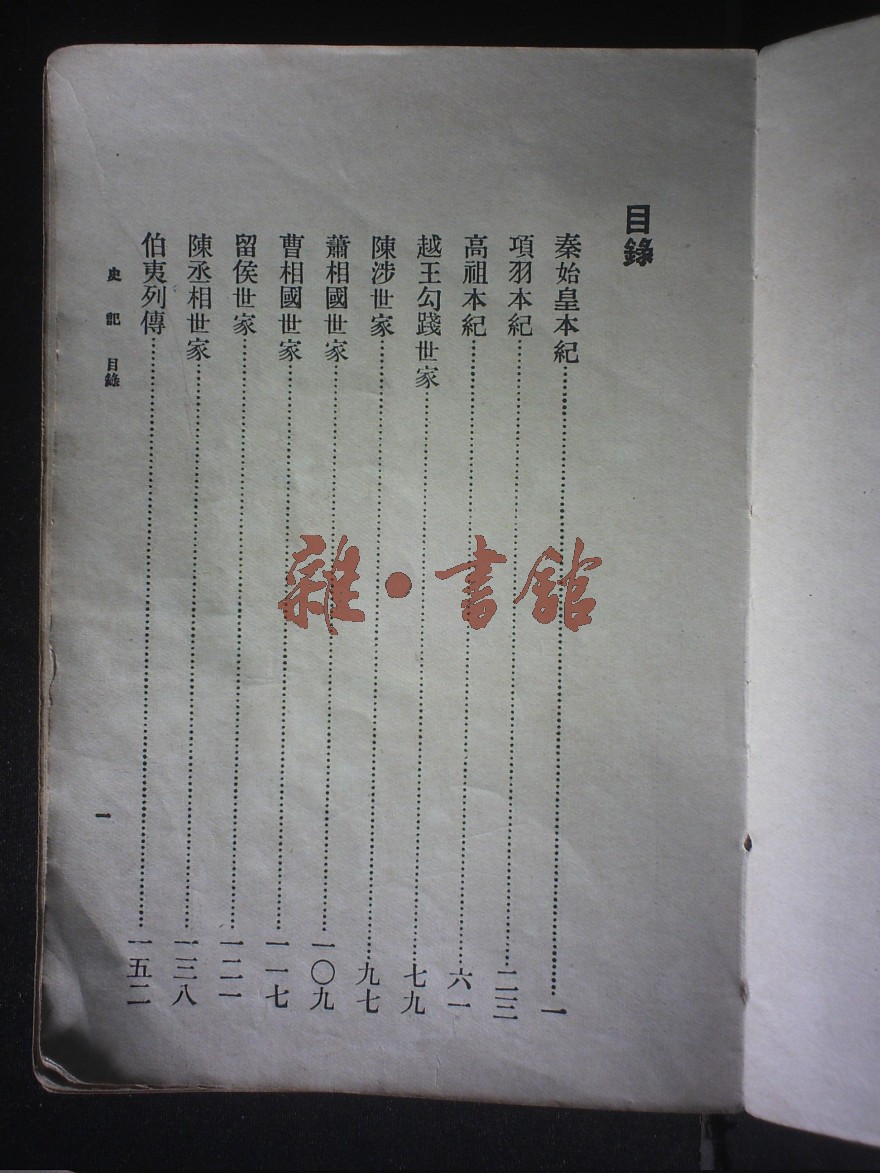 目錄
秦始皇本紀……一
項羽本紀……二三
高祖本紀……六一
越王勾踐世家……七九
陳涉世家……九七
蕭相國世家……一〇九
曹相國世家……一一七
留侯世家……一二一
陳丞相世家……一三八
伯夷列傳……一五二
史記 目錄
一
雜·書館